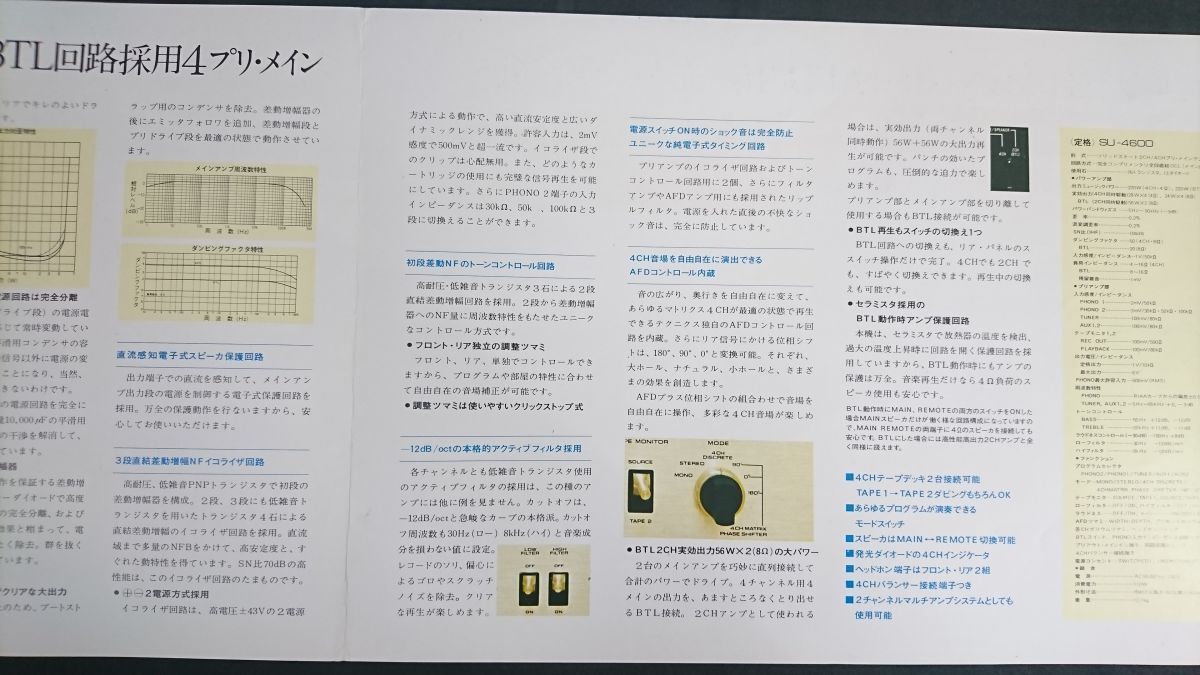 BTL回路採用4プリ・メイン
リアでキレのよいドラ
す。
源回路は完全分離
ライブ段)の電源電
じて常時変動してい
平滑用コンデンサの容
信号以外に電源の変
ことになり、当然、
きないわけです。
の電源回路を完全に
量10,000μFの平滑用
の干渉を解消して、
ています。
幅器
作を保証する差動増
ーダイオードで高度
の完全分離、および
効果と相まって、電
たく除去。群を抜く
ています。
クリアな大出力
たのため、ブートスト
ラップ用のコンデンサを除去。差動増幅器の
後にエミッタフォロワを追加、差動増幅段と
プリドライブ段を最適の状態で動作させてい
ます。
メインアンプ周波数特性
相対レベル(dB)
周波数(Hz)
ダンピングファクタ特性
ダンピングファクタ
周波数(Hz)
直流感知電子式スピーカ保護回路
出力端子での直流を感知して、メインアン
プ出力段の電源を制御する電子式保護回路を
採用。万全の保護動作を行ないますから、安
心してお使いいただけます。
3段直結差動増幅NFイコライザ回路
高耐圧、低雑音PNPトランジスタで初段の
差動増幅器を構成。2段、3段にも低雑音ト
ランジスタを用いたトランジスタ4石による
直結差動増幅のイコライザ回路を採用。直流
域まで多量のNFBをかけて、高安定度と、す
ぐれた動特性を得ています。SN比70dBの高
性能は、このイコライザ回路のたまものです。
●⊕⊖2電源方式採用
イコライザ回路は、高電圧±43Vの2電源
方式による動作で、高い直流安定度と広いダ
イナミックレンジを獲得。許容入力は、2mV
感度で500mVと超一流です。イコライザ段で
のクリップは心配無用。また、どのようなカ
ートリッジの使用にも完璧な信号再生を可能
にしています。さらにPHONO 2端子の入力
インピーダンスは30kΩ、50k 、100kΩと3
段に切換えることができます。
初段差動NFのトーンコントロール回路
高耐圧・低雑音トランジスタ3石による2段
直結差動増幅回路を採用。2段から差動増幅
器へのNF量に周波数特性をもたせたユニーク
なコントロール方式です。
●フロント・リア独立の調整ツマミ
フロント、リア、単独でコントロールでき
ますから、プログラムや部屋の特性に合わせ
て自由自在の音場補正が可能です。
●調整ツマミは使いやすいクリックストップ式
—12dB/octの本格的アクティブフィルタ採用
各チャンネルとも低雑音トランジスタ使用
のアクティブフィルタの採用は、この種のア
ンプには他に例を見ません。カットオフは、
—12dB/octと急峻なカーブの本格派。カットオ
フ周波数も30Hz(ロー) 8kHz(ハイ)と音楽成
分を損わない値に設定。
レコードのソリ、偏心に
よるプロやスクラッチ
ノイズを除去。クリア
な再生が楽しめます。
LOW FILTER
HIGH FILTER
OFF
OFF
ON
ON
電源スイッチON時のショック音は完全防止
ユニークな純電子式タイミング回路
プリアンプのイコライザ回路およびトーン
コントロール回路用に2個、さらにフィルタ
アンプやAFDアンプ用にも採用されたリップ
ルフィルタ。電源を入れた直後の不快なショ
ック音は、完全に防止しています。
4CH音場を自由自在に演出できる
AFDコントロール内蔵
音の広がり、奥行きを自由自在に変えて、
あらゆるマトリクス4CHが最適の状態で再生
できるテクニクス独自のAFDコントロール回
路を内蔵。さらにリア信号にかける位相シフ
トは、180°、90°、0°と変換可能。それぞれ、
大ホール、ナチュラル、小ホールと、さまざ
まの効果を創造します。
AFDプラス位相シフトの組み合わせで音場を
自由自在に操作、多彩な4CH音場が楽しめ
ます。
PE MONITOR
SOURCE
TAPE 2
MODE
4CH DISCRETE
STEREO
MONO
90°
0°
180°
4CH MATRIX
PHASE SHIFTER
●BTL2CH実効出力56W×2(8Ω)の大パワー
2台のメインアンプを巧妙に直列接続して
合計のパワーでドライブ。4チャンネル用4
メインの出力を、あますところなくとり出せ
るBTL接続。2CHアンプとして使われる
場合は、実効出力(両チャンネル
同時動作)56W+56Wの大出力再
生が可能です。パンチの効いたプ
ログラムも、圧倒的な迫力で楽し
めます。
プリアンプ部とメインアンプ部を切り離して
使用する場合もBTL接続が可能です。
●BTL再生もスイッチの切換え1つ
BTL回路への切換えも、リア・パネルのス
イッチ操作だけで完了。4CHでも2CHで
も、すばやく切換えできます。再生中の切換
えも可能です。
●セラミスタ採用の
BTL動作時アンプ保護回路
本機は、セラミスタで放熱器の温度を検出、
過大の温度上昇時に回路を開く保護回路を採
用していますから、BTL動作時にもアンプの
保護は万全。音楽再生だけなら4Ω負荷のス
ピーカ使用も安心です。
BTL動作時にMAIN、REMOTEの両方のスイッチをONした
場合MAINスピーカだけが働く様な回路構成になっています
ので、MAIN REMOTE両端子に4Ωのスピーカを接続しても
安心です。BTLにした場合には高性能高出力2CHアンプと全
く同様に扱えます。
■4CHテープデッキ2台接続可能
TAPE 1→TAPE 2ダビングもちろんOK
■あらゆるプログラムが演奏できる
モードスイッチ
■スピーカはMAIN↔REMOTE切換可能
■発光ダイオードの4CHインジケータ
■ヘッドホン端子はフロント・リア2組
■4CHバランサー接続端子つき
■2チャンネルマルチアンプシステムとしても
使用可能
〈定格〉SU-4600
●パワーアンプ部
●プリアンプ部
PHONO 1
PHONO 2
TUNER
AUX1,2
REC OUT
PLAYBACK
PHONO
BASS
TREBLE